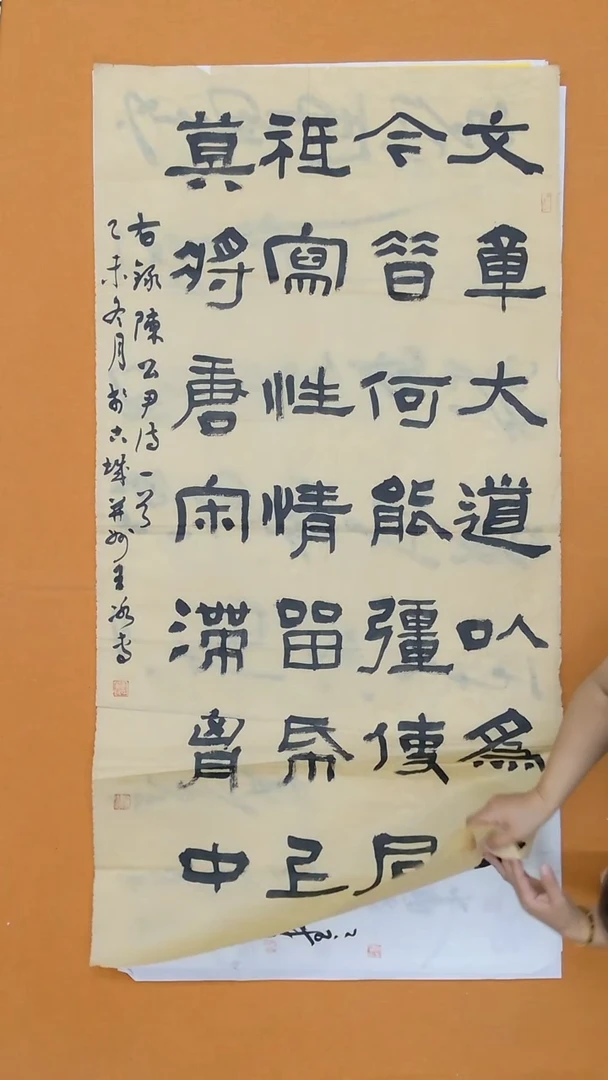 文章大道以為
今昔何能彊使同
祗寫性情留帋上
莫將唐宋滯胷中
右錄陳公尹詩一首
乙未冬月於古城并州王書